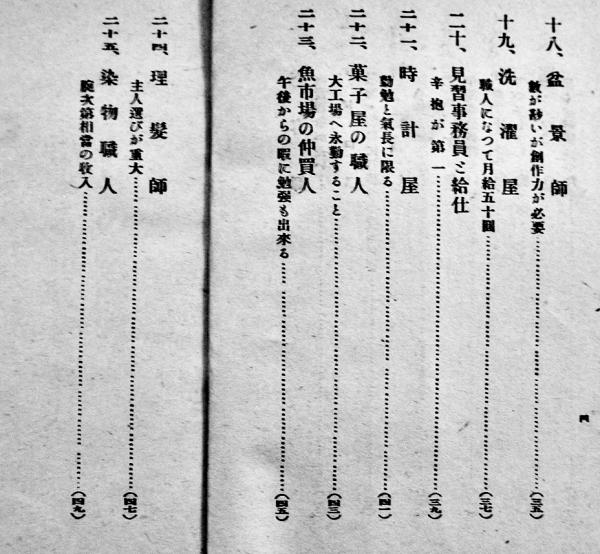 十八、盆景師
數が尠いが創作力が必要……(三五)
十九、洗濯屋
職人になつて月給五十圓……(三七)
二十、見習事務員と給仕
辛抱が第一……(三九)
二十一、時計屋
勤勉と氣長に限る……(四一)
二十二、菓子屋の職人
大工場へ永勤すること……(四三)
二十三、魚市場の仲買人
午後からの暇に勉強も出來る……(四五)
四
二十四、理髮師
主人選びが重大……(四七)
二十五、染物職人
腕次第相當の收入……(四九)